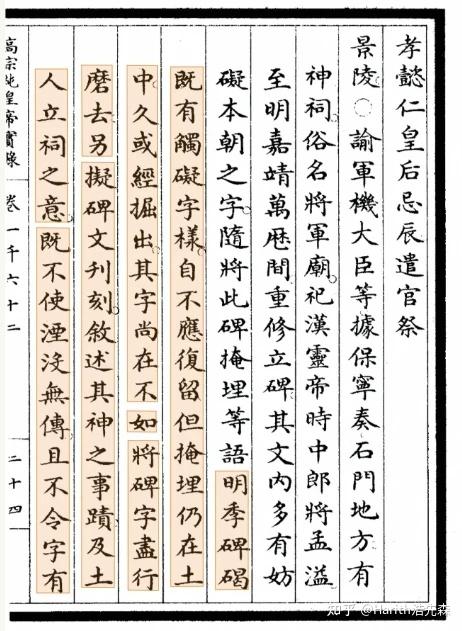 孝懿仁皇后忌辰遣官祭
景陵○諭軍機大臣等據保寧奏石門地方有
神祠俗名將軍廟祀漢靈帝時中郎將孟溢
至明嘉靖萬厯間重修立碑其文內多有妨
礙本朝之字隨將此碑掩埋等語明季碑碣
既有觸礙字樣自不應復留但掩埋仍在土
中久或經掘出其字尚在不如將碑字盡行
磨去另擬碑文刊刻敘述其神之事蹟及土
人立祠之意既不使湮沒無傳且不令字有
高宗純皇帝實錄 卷一千六十二 二十四
知乎 @Harith浩先森